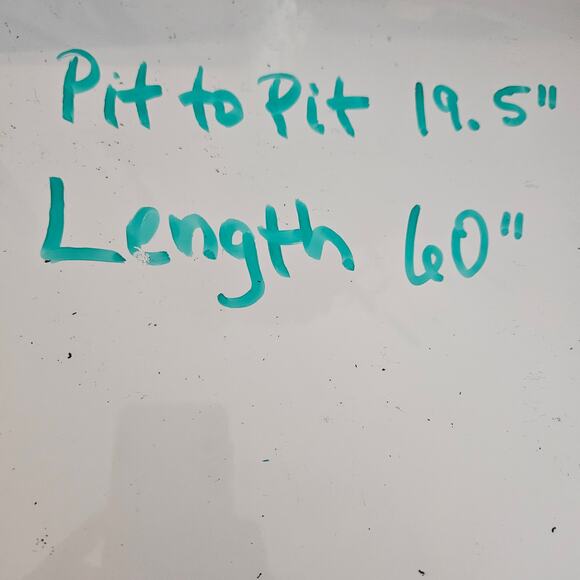 Pit to Pit 19.5"
Length 60"